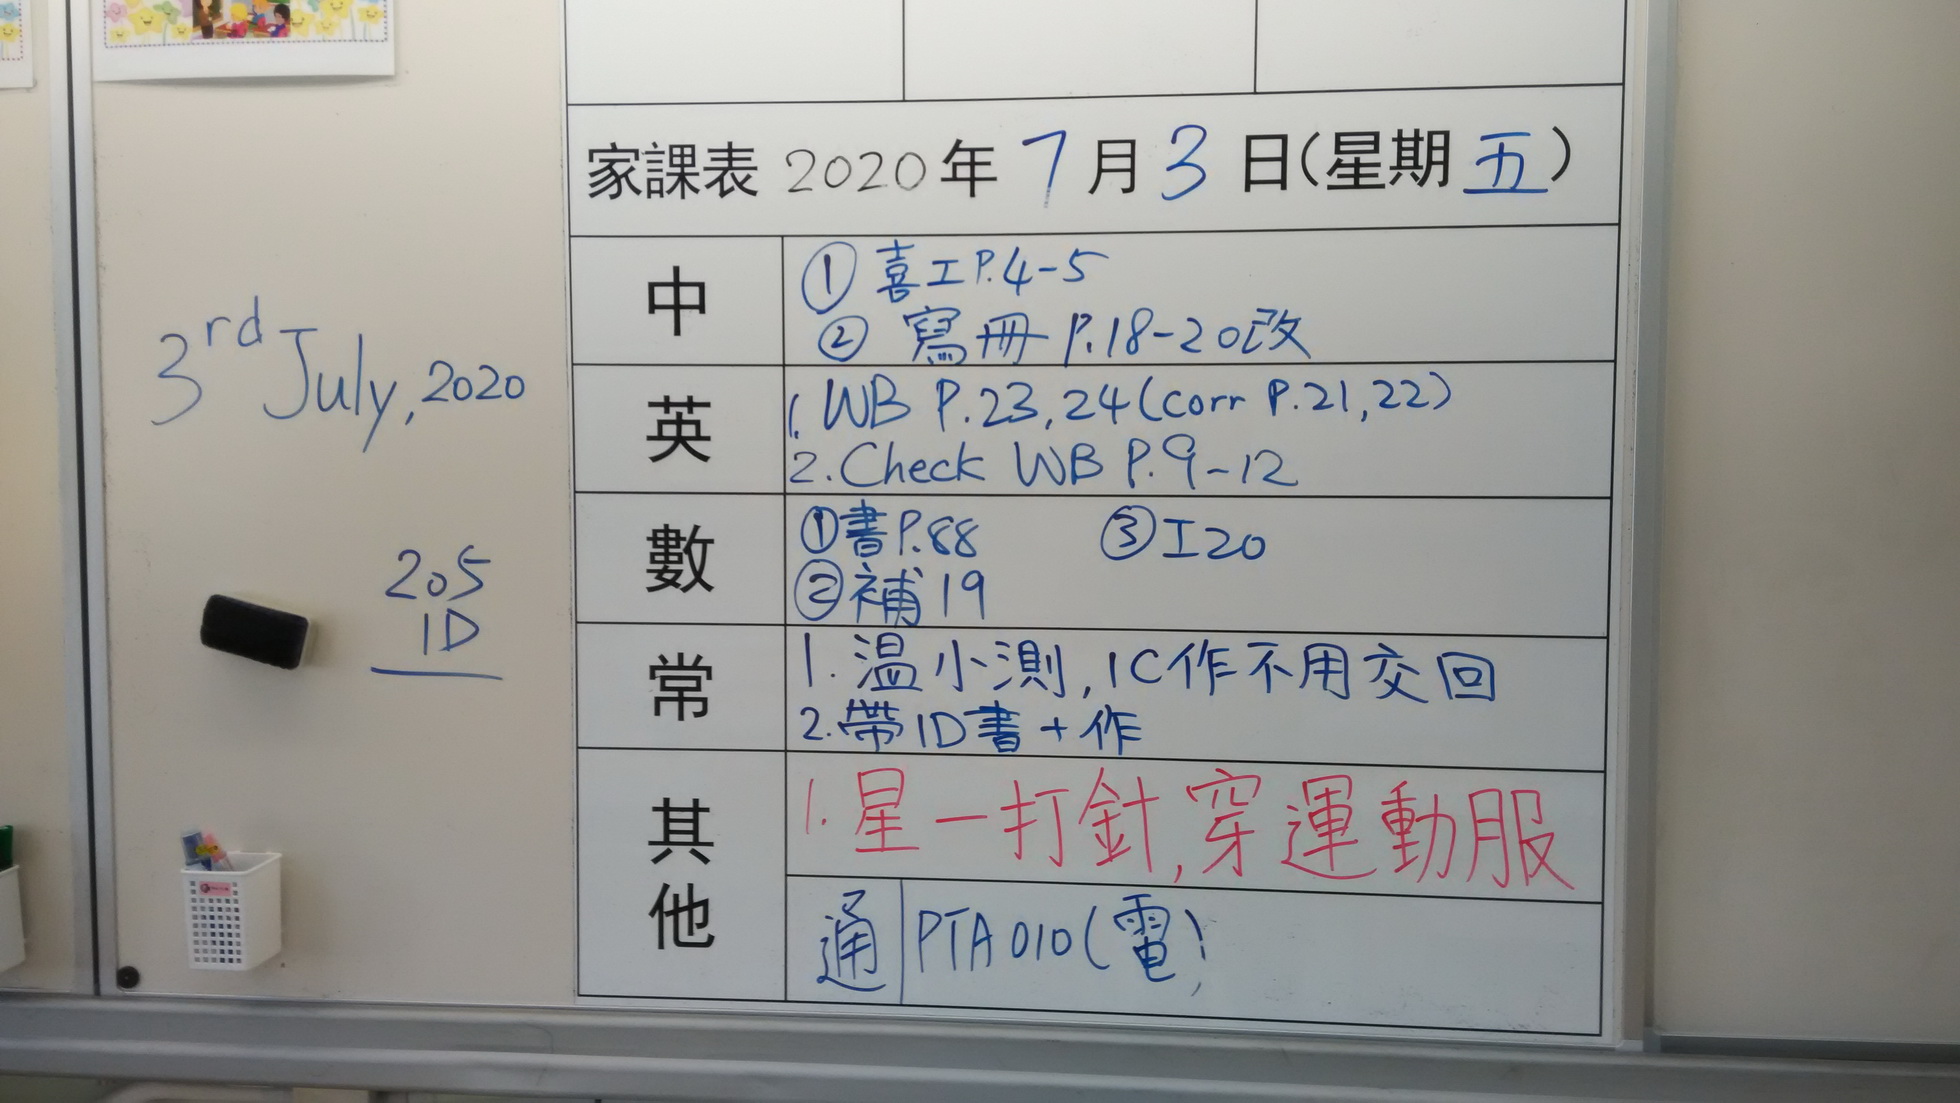 家課表 2020年 7月3日(星期五)
中
① 喜工P.4-5
② 寫冊 P.18-20改
英
1. WB P.23,24(corr P.21,22)
2. Check WB P.9-12
數
①書P.88 ③工20
②補19
常
1. 温小測,1C作不用交回
2.帶1D書+作
其他
1. 星一打針,穿運動服
通 PTA010(電)
3rd July, 2020
205
1D